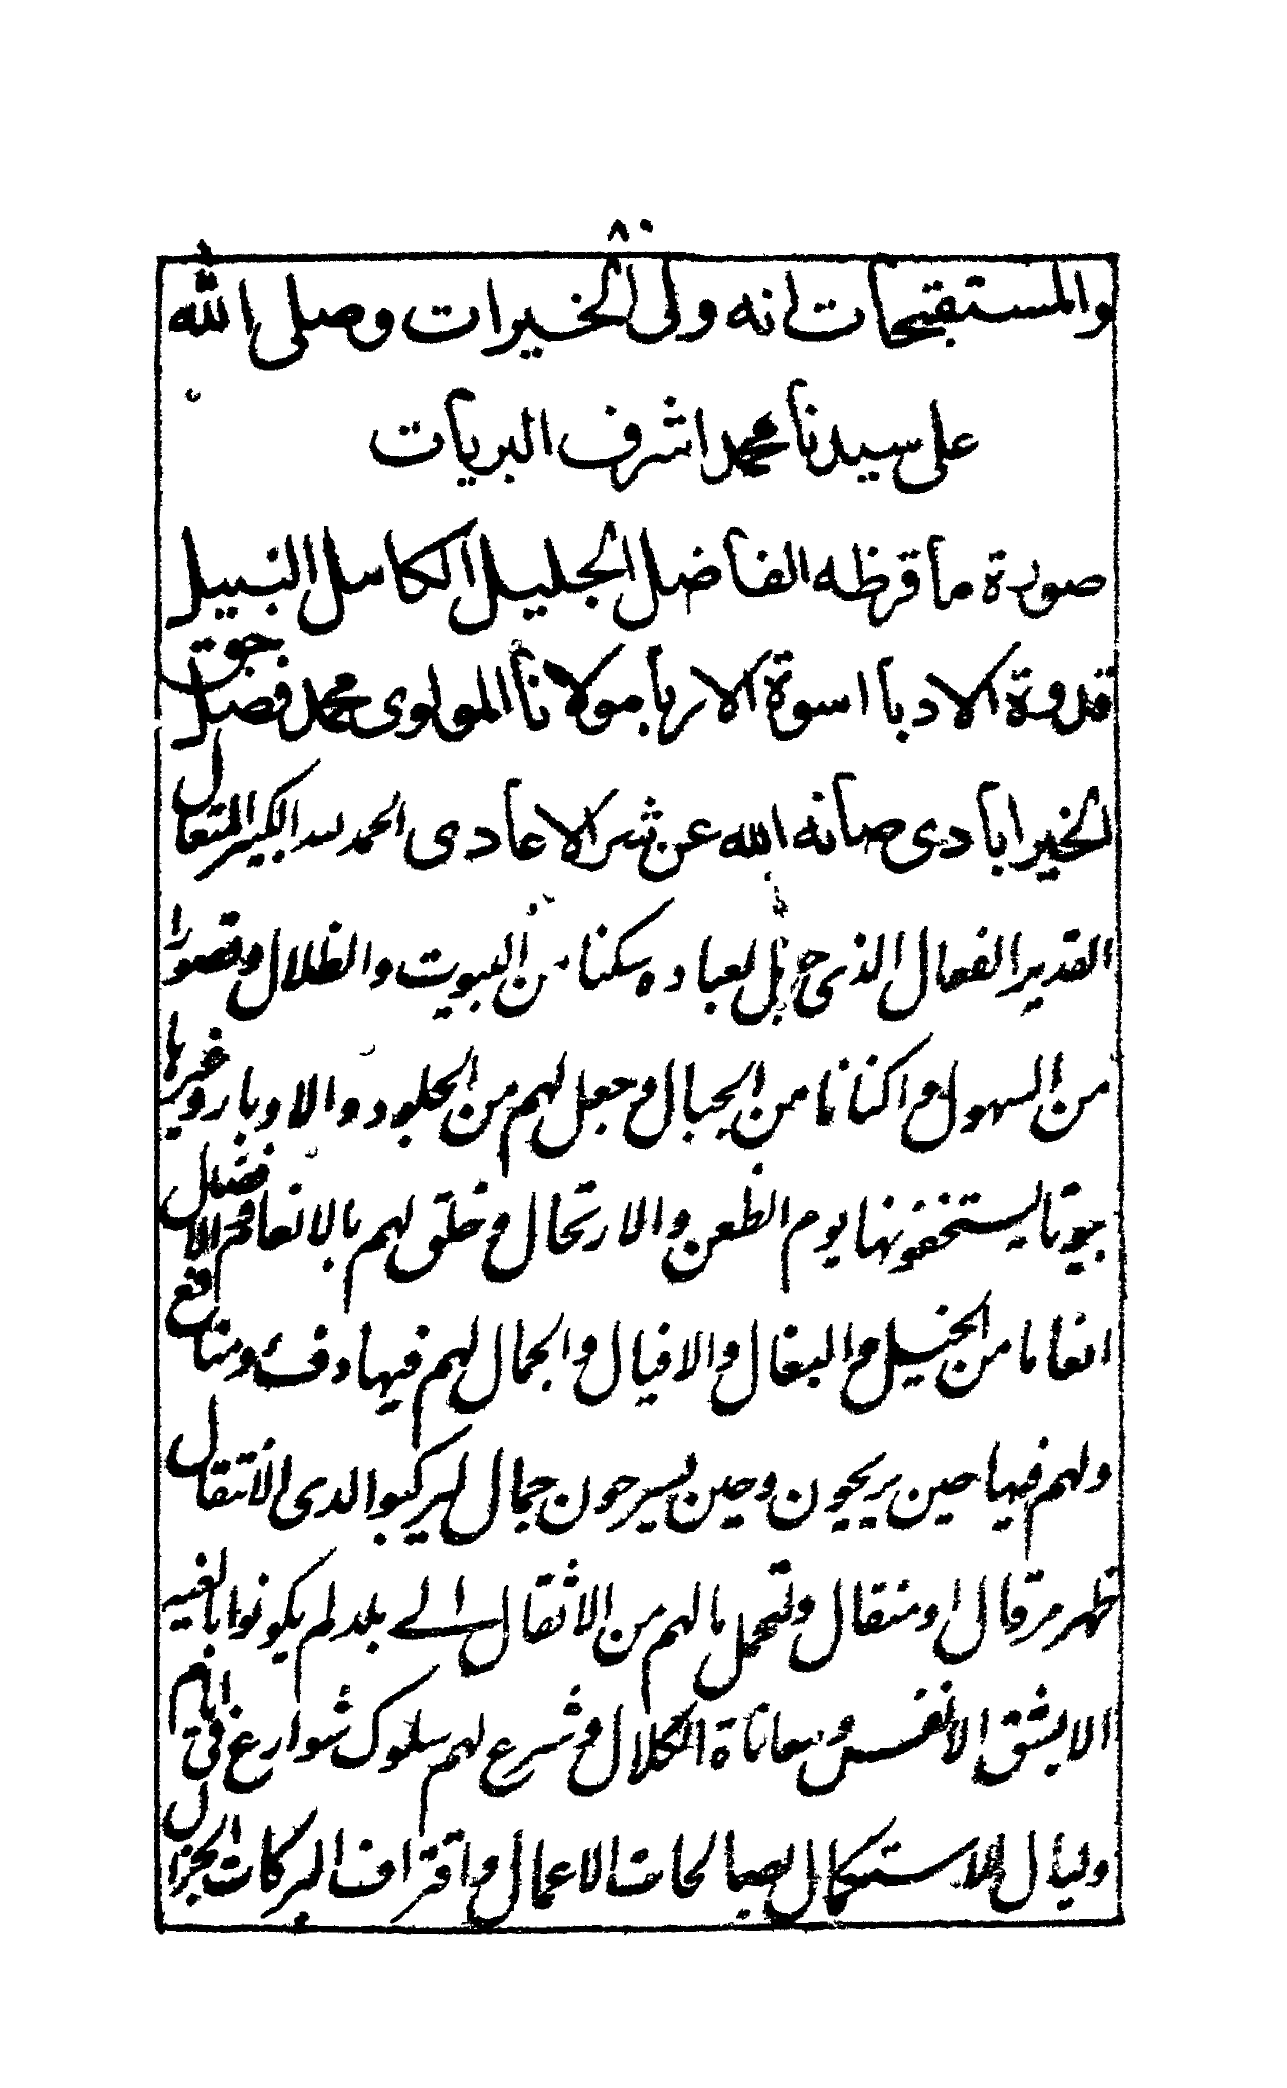 ٨٠
والمستقبحات انه ولى الخيرات وصلى الله
على سيدنا محمد اشرف البريات
صورة ما قرظه الفاضل الجليل الكامل النبيل
قدوة الادبا اسوة الاربا مولانا المولوى محمد فضل حق
الخيرابادى صانه الله عن شر الاعادى الحمد لله الكبير المتعال
القدير الفعال الذى جعل لعباده سكنا من البيوت والظلال وقصورا
من السهول واكنانا من الجبال وجعل لهم من الجلود والاوبار وغيرها
بيوتا يستخفونها يوم الظعن والارتحال وخلق لهم بالانعام والافضال
انعاما من الخيل والبغال والافيال والجمال لهم فيها دفء ومنافع
ولهم فيها جمال حين يريحون وحين يسرحون ليركبوا لدى الانتقال
ظهر مرقال او منقال وتحمل مالهم من الاثقال الى بلد لم يكونوا بالغيه
الا بشق الانفس ومعاناة الكلال وشرع لهم سلوك شوارع فى ايام
وليال للاستكمال بصالحات الاعمال واقتراف البركات